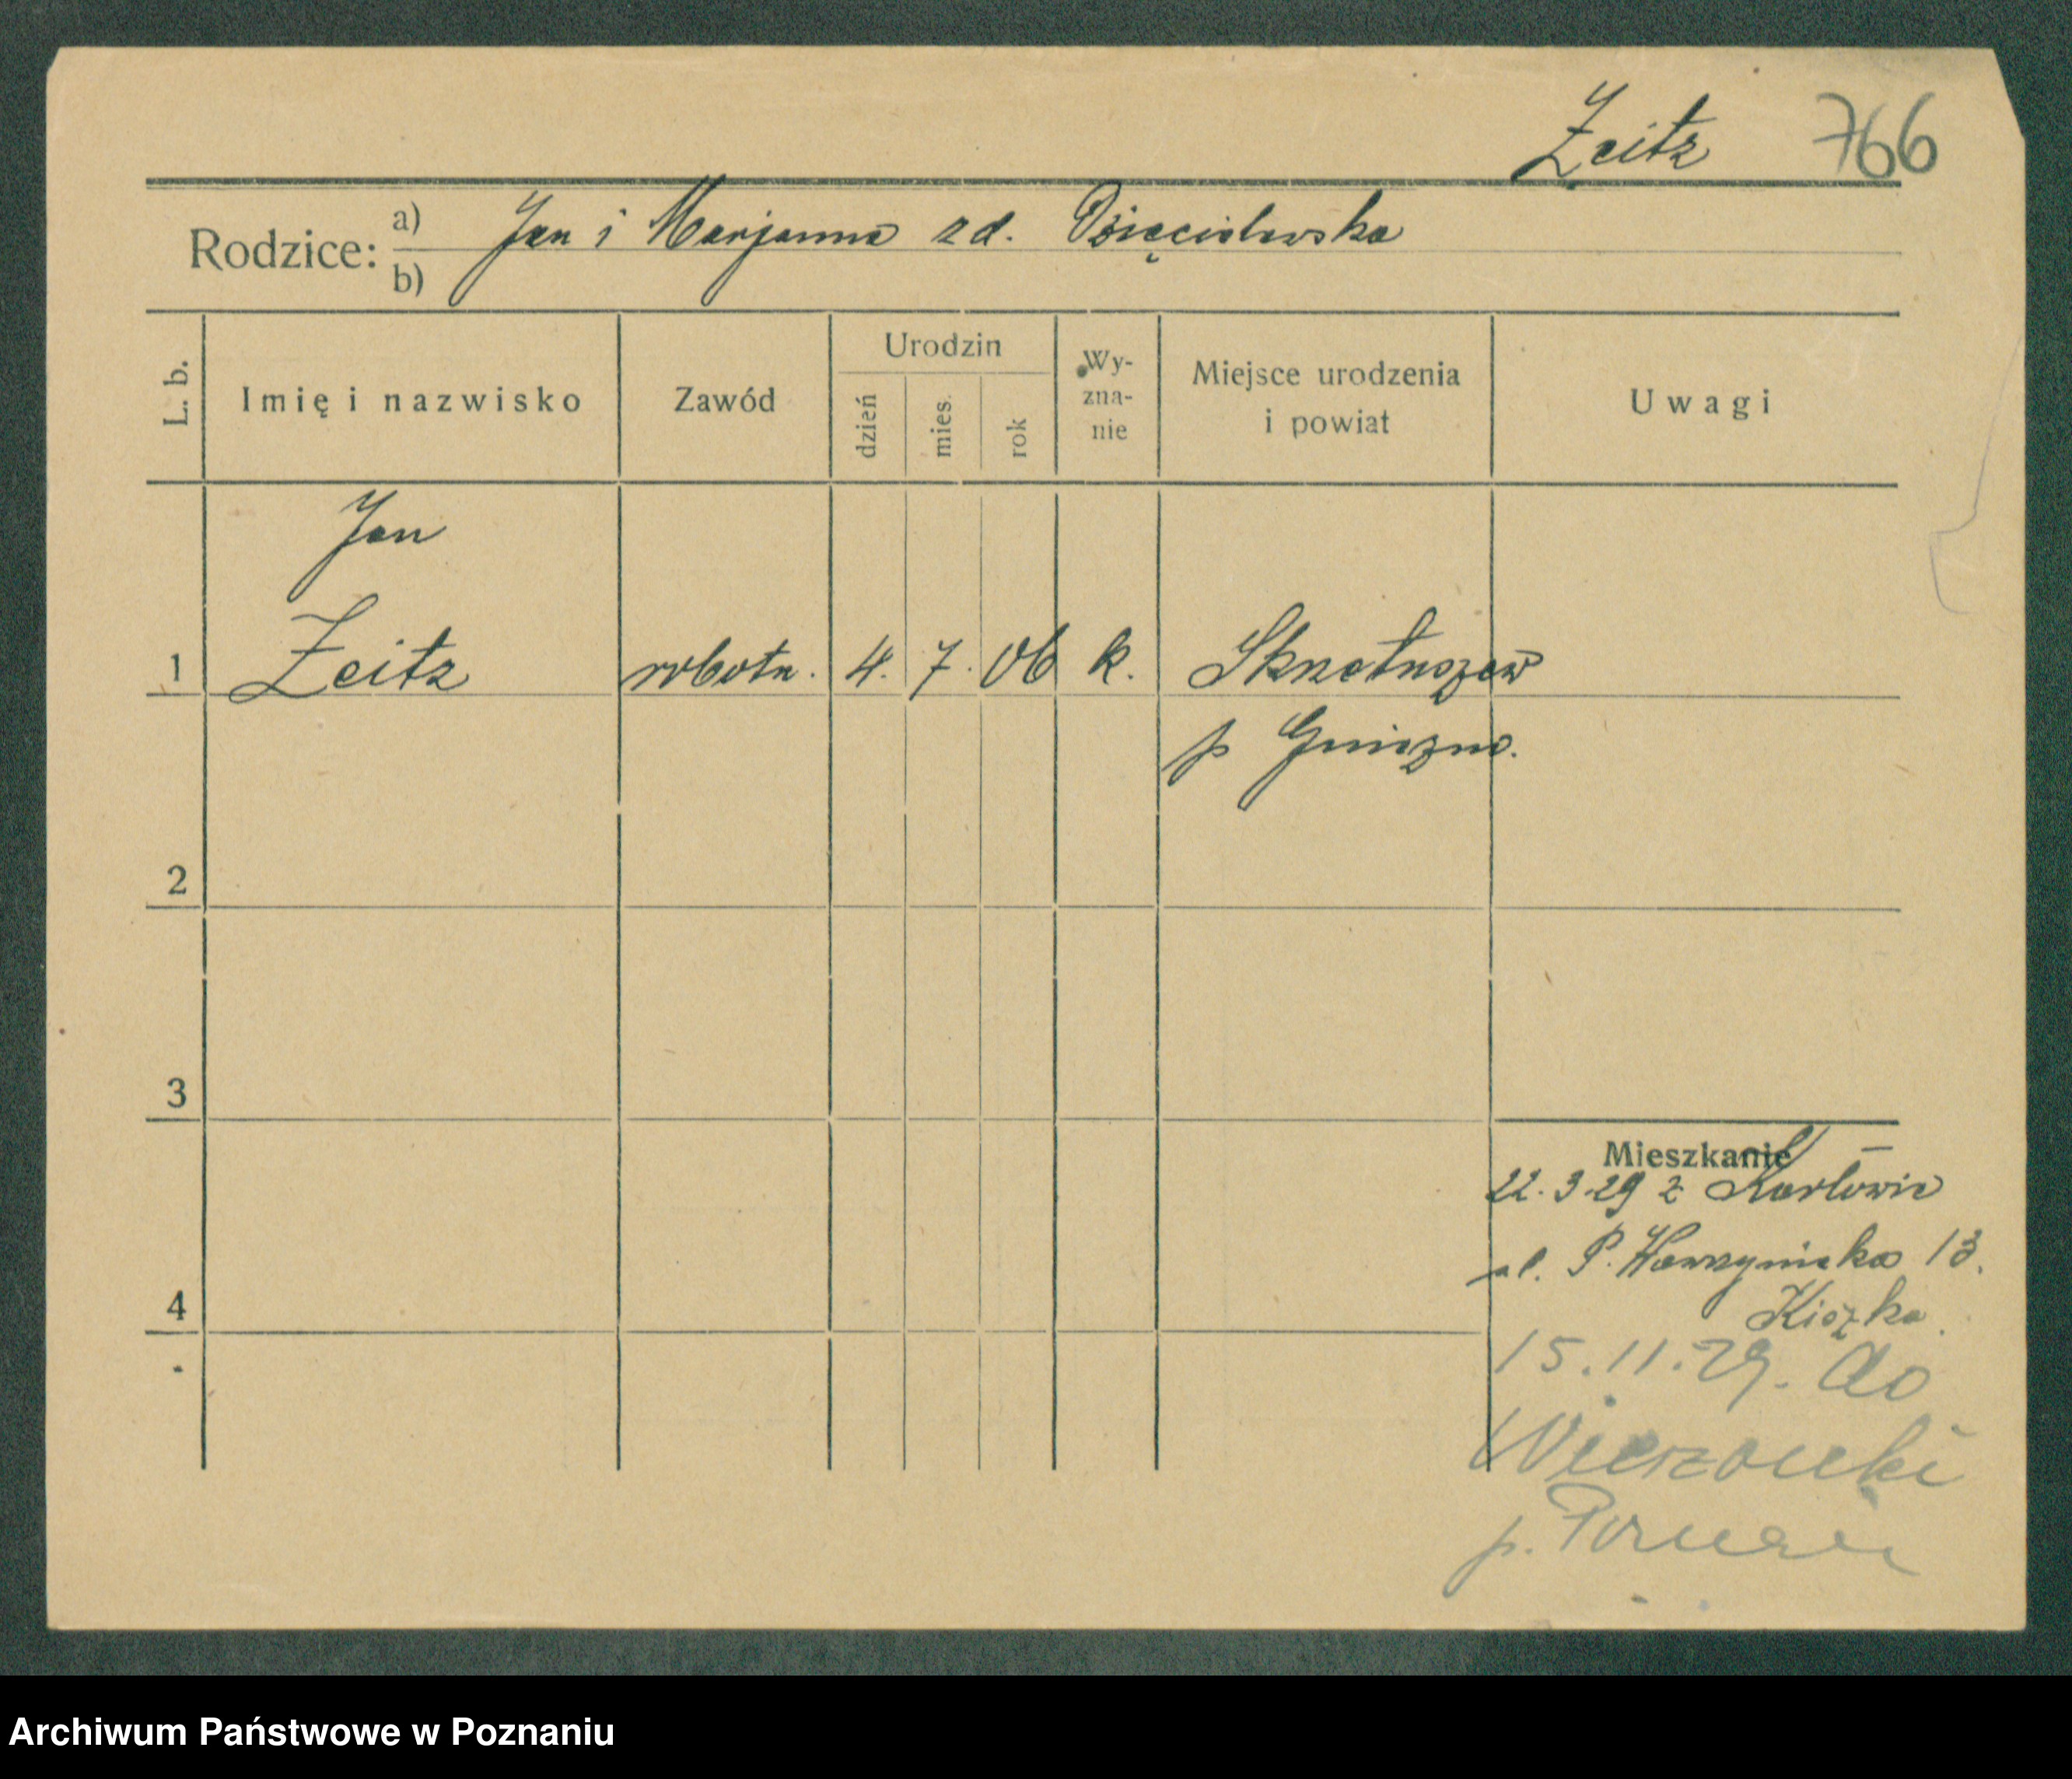 Zeitz 766
Rodzice: a) Jan i Marjanna zd. Dzięcielewska
b)
L. b. Imię i nazwisko Zawód Urodzin dzień mies. rok Wy-zna-nie Miejsce urodzenia i powiat Uwagi
Jan
1 Zeitz robotn. 4. 7. 06 k. Skrzetuszew
p Gniezno.
2
3
Mieszkanie
22.3.29 z Karłowic
ul. P. Wawrzyniaka 13.
4 Kiszka
15.11.29. do
p. Poznań
Archiwum Państwowe w Poznaniu